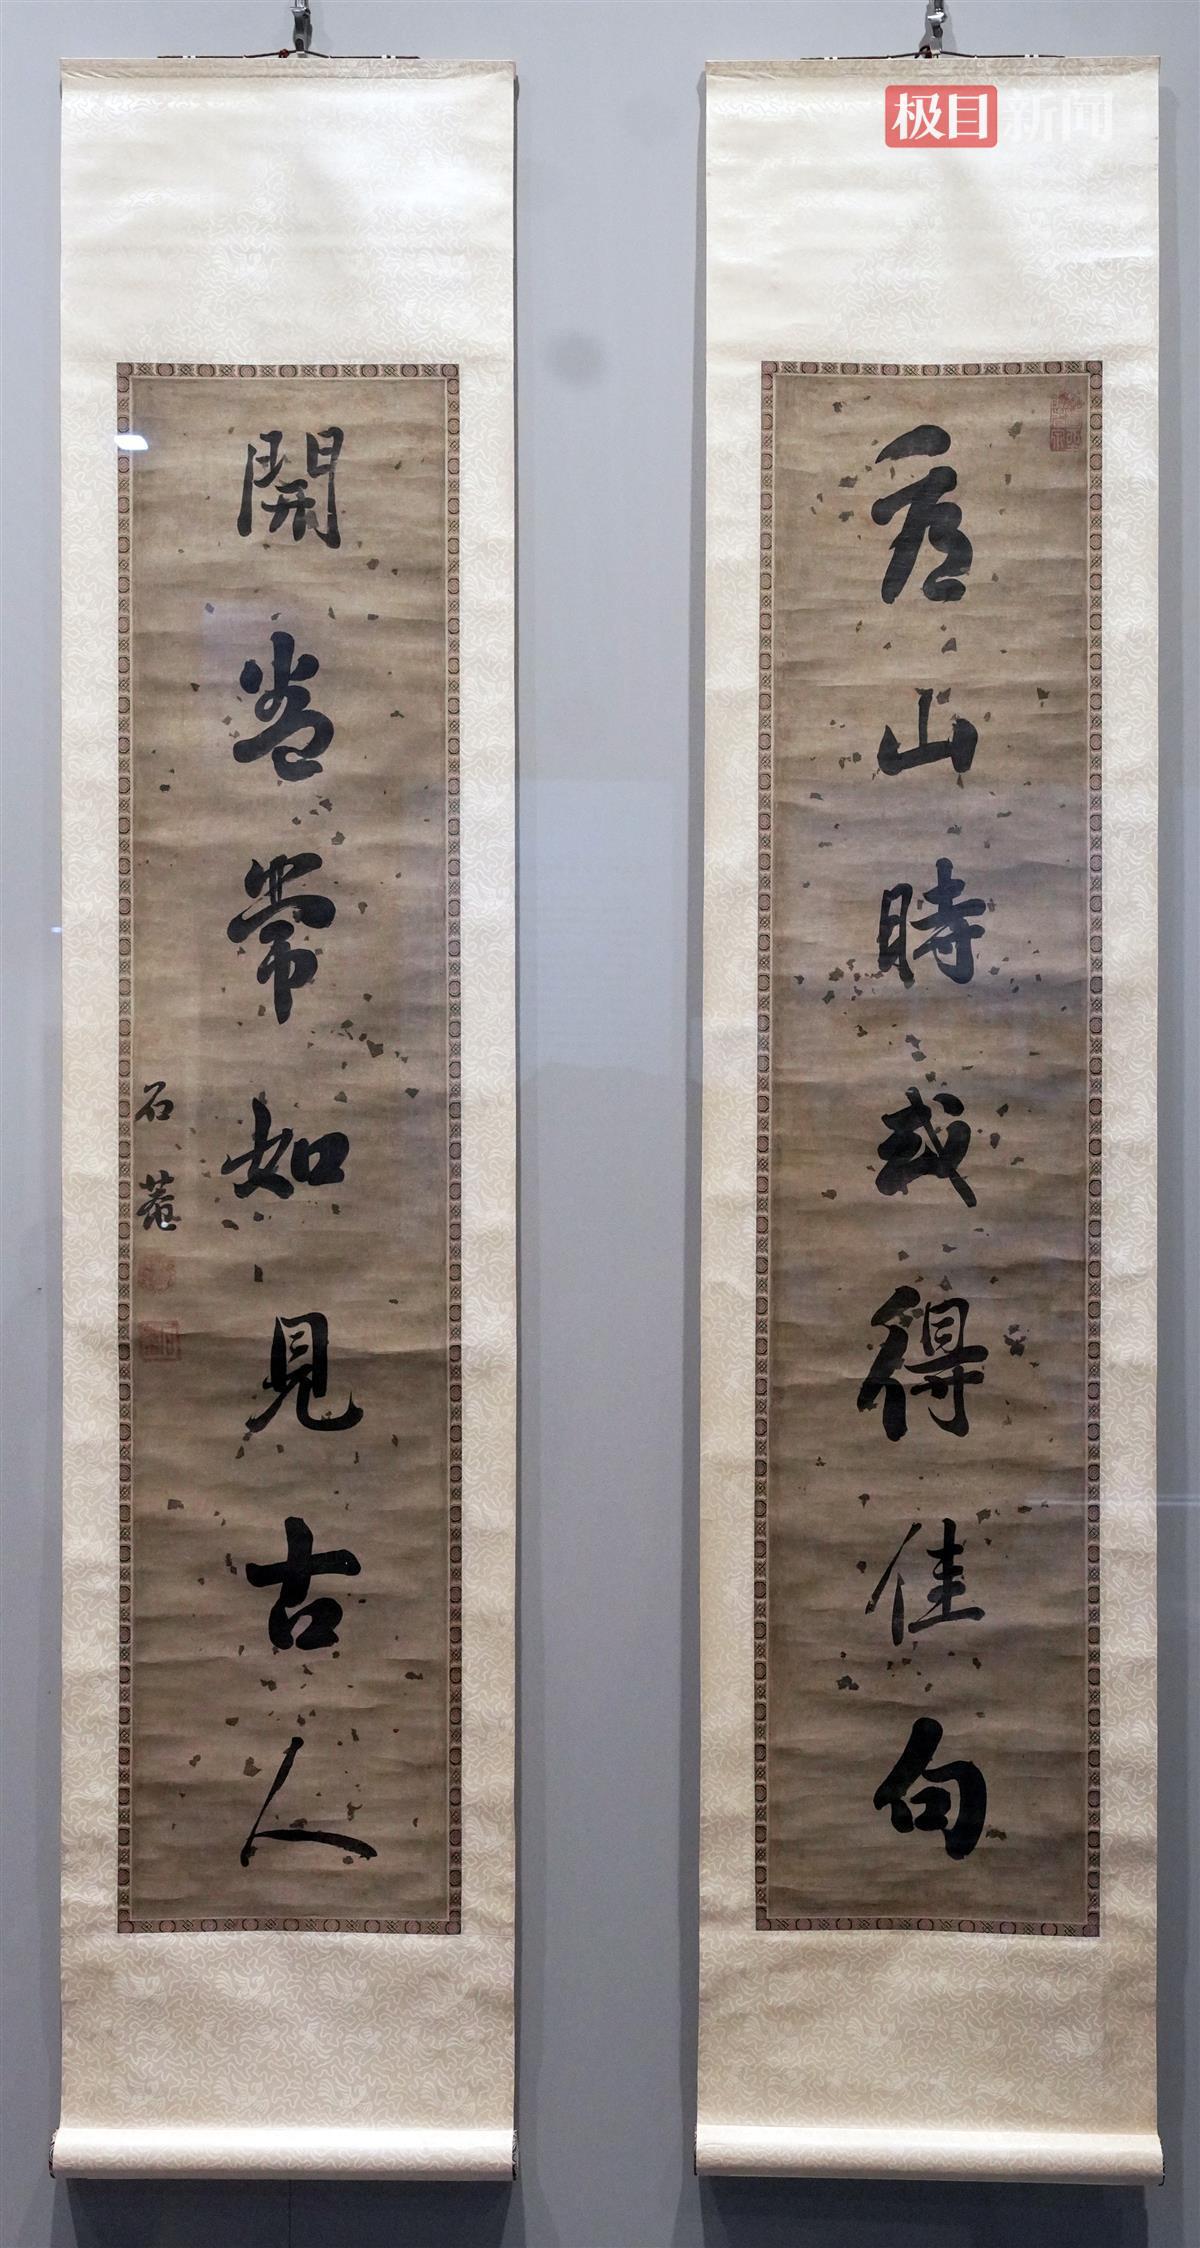 极目新闻
看山時或得佳句
開卷常如見古人
石菴